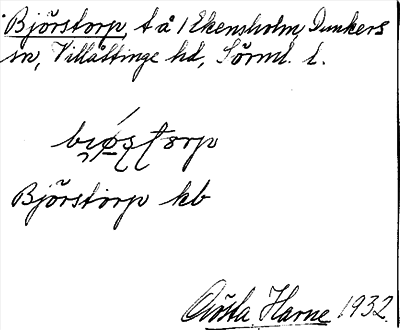 Björstorp, t å / Ekensholm, Dunkers
sn, Villåttinge hd, Sörml. l.
Björstorp kb
Gösta Harne 1932.